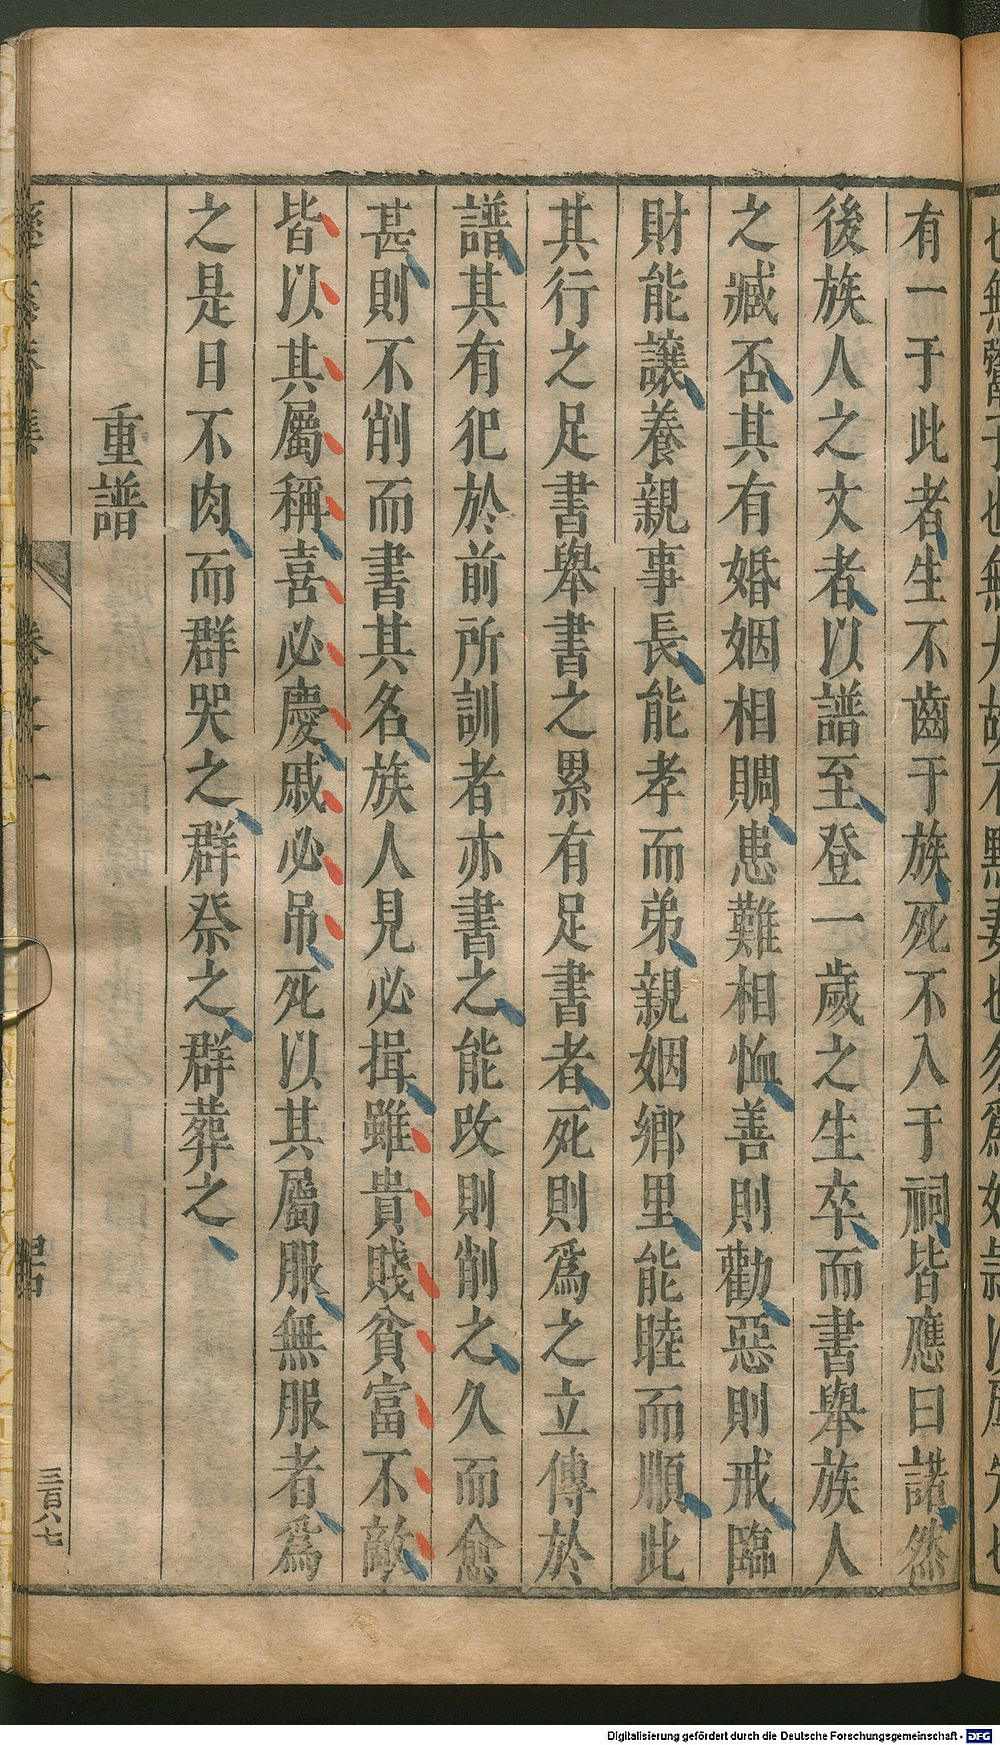 有一于此者生不齒于族死不入于祠皆應曰諾然
後族人之文者以譜至登一歲之生卒而書舉族人
之臧否其有婚姻相賙患難相恤善則勸惡則戒臨
財能讓養親事長能孝而弟親姻鄉里能睦而順此
其行之足書舉書之累有足書者死則爲之立傳於
譜其有犯於前所訓者亦書之能改則削之久而愈
甚則不削而書其名族人見必揖雖貴賤貧富不敵
皆以其屬稱喜必慶戚必吊死以其屬服無服者爲
之是日不肉而群哭之群祭之群葬之
重譜
三百八七
Digitalisierung gefördert durch die Deutsche Forschungsgemeinschaft - DFG